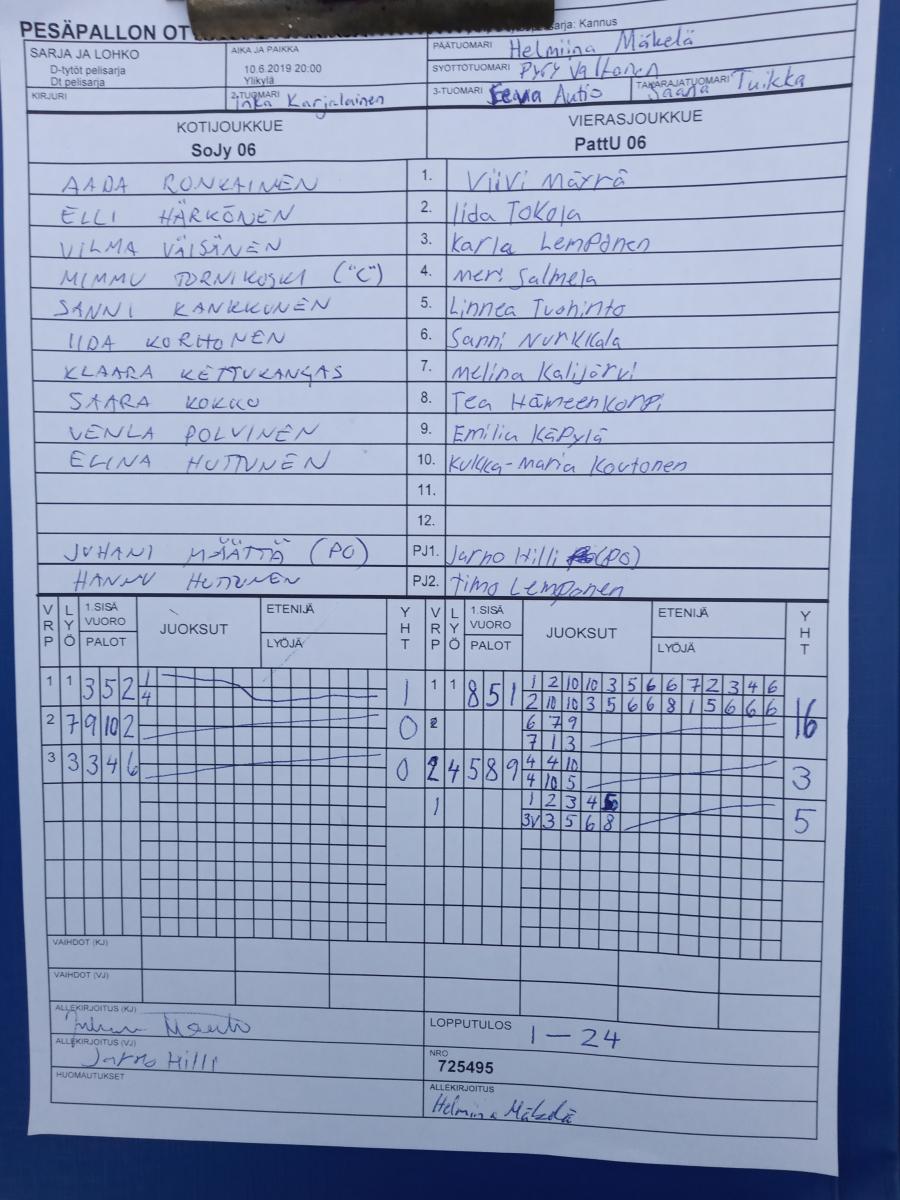 PESÄPALLON OT
sarja: Kannus
SARJA JA LOHKO
D-tytöt pelisarja
Dt pelisarja
AIKA JA PAIKKA
10.6.2019 20:00
Ylikylä
PÄÄTUOMARI Helmiina Mäkelä
SYÖTTÖTUOMARI Pyry Valtonen
KIRJURI
2-TUOMARI Inka Karjalainen
3-TUOMARI Eeva Autio
TAKARAJATUOMARI Saana Tuikka
KOTIJOUKKUE
SoJy 06
VIERASJOUKKUE
PattU 06
AADA RONKAINEN 1. Viivi Märrä
ELLI HÄRKÖNEN 2. Iida Tokola
VILMA VÄISÄNEN 3. Karla Lemponen
MIMMU TORNIKOSKI ("C") 4. Meri Salmela
SANNI KANKKUNEN 5. Linnea Tuohinto
IIDA KORHONEN 6. Sanni Nurkkala
KLAARA KETTUKANGAS 7. Melina Kalijärvi
SAARA KOKKO 8. Tea Hämeenkorpi
VENLA POLVINEN 9. Emilia Käpylä
ELINA HUTTUNEN 10. Kukka-Maria Koutonen
11.
12.
JUHANI MÄÄTTÄ (PO) PJ1. Jarno Hilli (PO)
HANNU HUTTUNEN PJ2. Timo Lemponen
VRP LYÖ 1.SISÄ VUORO PALOT JUOKSUT ETENIJÄ LYÖJÄ YHT VRP LYÖ 1.SISÄ VUORO PALOT JUOKSUT ETENIJÄ LYÖJÄ YHT
1 1 3 5 2 1 1 1 1 8 5 1 1 2 10 10 3 5 6 6 7 2 3 4 6 16
4 2 10 10 3 5 6 6 8 1 5 6 6 6
2 7 9 10 2 0 2 6 7 9
7 1 3
3 3 3 4 6 0 2 4 5 8 9 4 4 10 3
4 10 5
1 1 2 3 4 5
3V 3 5 6 8
VAIHDOT (KJ)
VAIHDOT (VJ)
ALLEKIRJOITUS (KJ)
LOPPUTULOS 1 – 24
ALLEKIRJOITUS (VJ)
Jarno Hilli
NRO
725495
HUOMAUTUKSET
ALLEKIRJOITUS
Helmiina Mäkelä